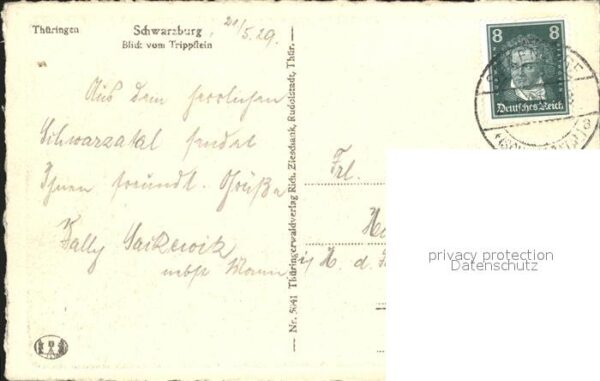 Thüringen
Schwarzburg
Blick vom Trippstein
21/5.29.
Aus dem herrlichen
Schwarzatal sendet
Ihnen freundl. Grüße
Nr. 5941 Thüringerwaldverlag Rich. Zieschank, Rudolstadt, Thür.
8 8
Deutsches Reich
Frl.
i/ H. d.
privacy protection
Datenschutz